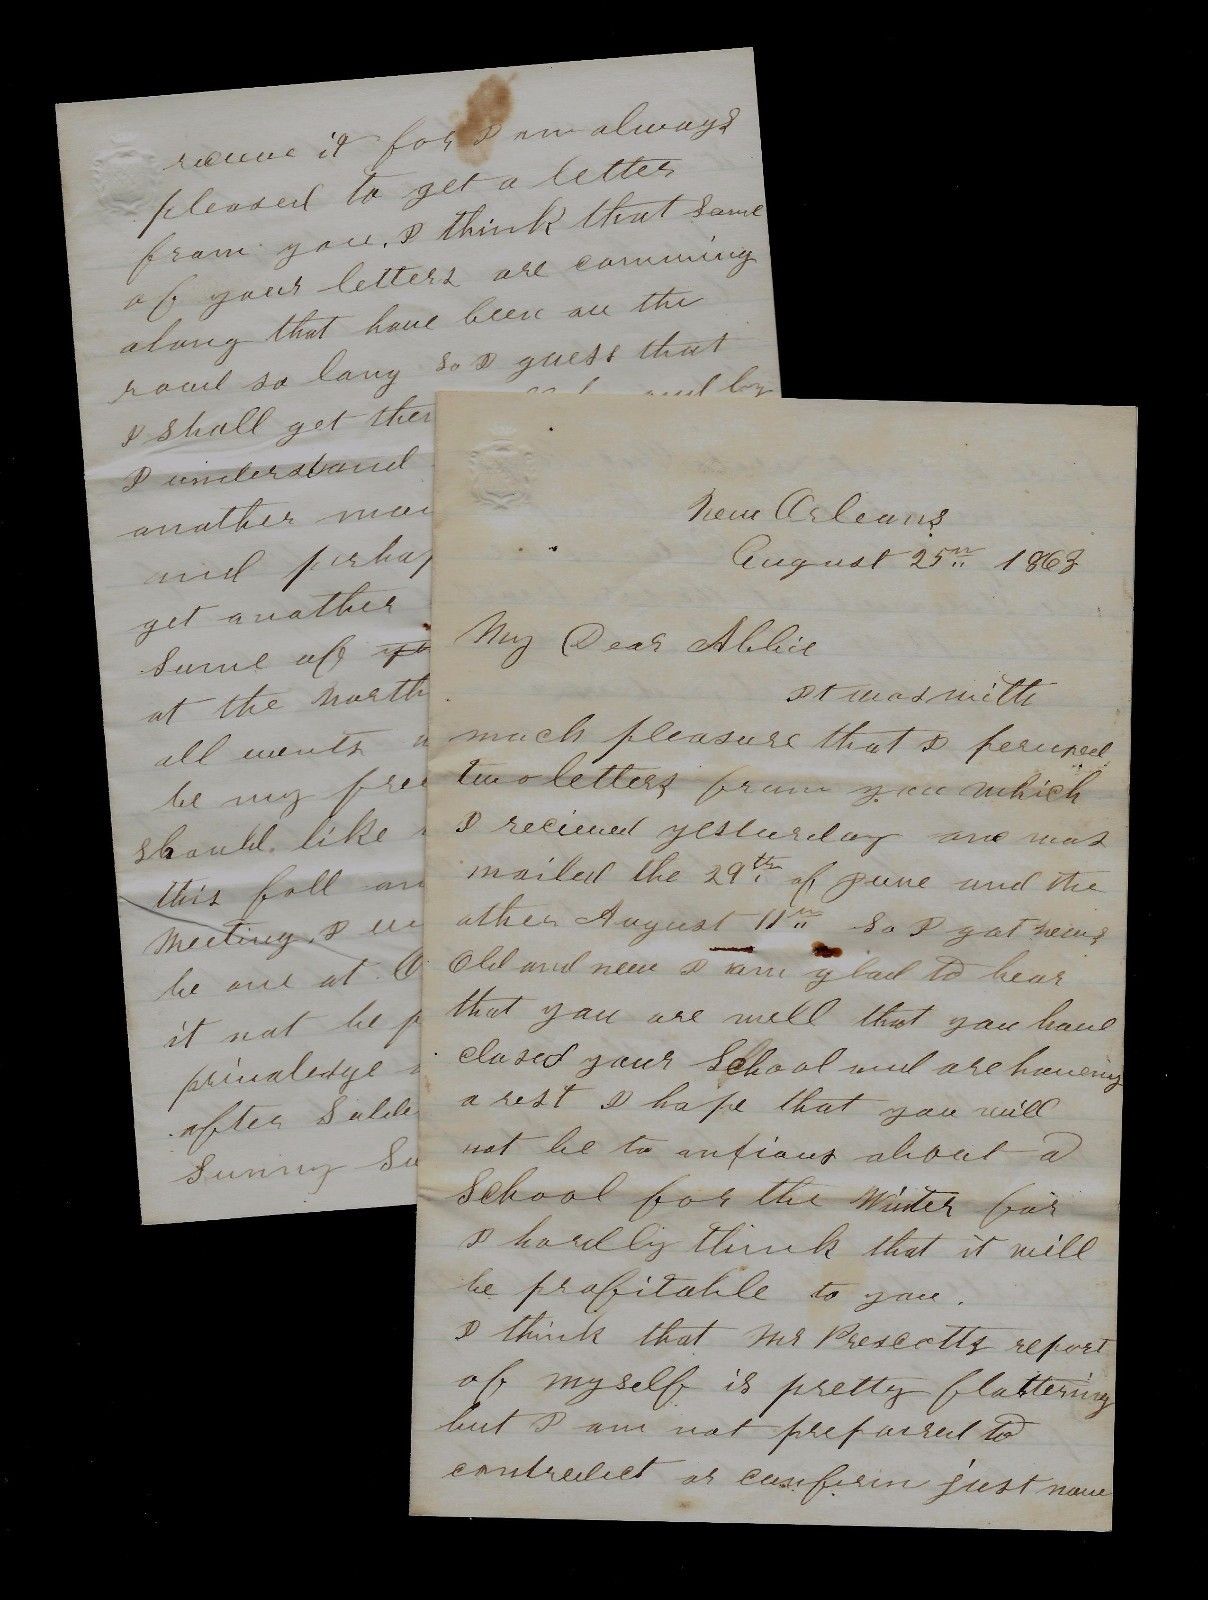 recieve it for I am always
pleased to get a letter
from you. I think that some
of your letters are comming
along that have been on the
road so long so I guess that
I shall get
and by
I understand
another
and
get another
some of
at the North
all events
be my
should like
this fall
Meeting, I
be one at
it not be
privaledge
after
Sunny
New Orleans
August 25th 1863
My Dear Abbie
It was with
much pleasure that I perused
two letters from you which
I recieved yesturday one was
mailed the 29th of June and the
other August 11th So I got news
Old and new I am glad to hear
that you are well that you have
closed your School and are haveing
a rest I hope that you will
not be to anxious about a
School for the Winter for
I hardly think that it will
be profitable to you.
I think that Mr Prescotts report
of myself is pretty flattering
but I am not prepared to
contredict or confirm just now